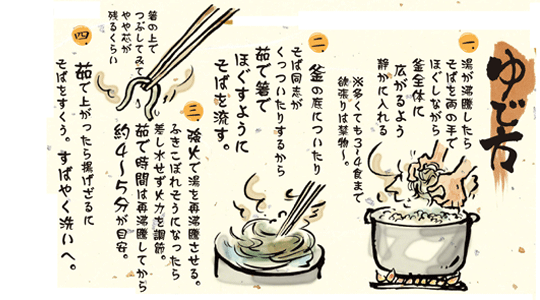 ゆで方
一.
湯が沸騰したら
そばを両の手で
ほぐしながら
釜全体に
広がるよう
静かに入れる
※多くても3~4食まで
欲張りは禁物~。
二.
釜の底についたり
そば同志が
くっついたりするから
茹で箸で
ほぐすように
そばを流す。
三.
強火で湯を再沸騰させる。
ふきこぼれそうになったら
差し水せず火力を調節。
茹で時間は再沸騰してから
約4~5分が目安。
箸の上で
つぶしてみて
やや芯が
残るくらい
四.
茹で上がったら揚げざるに
そばをすくう。すばやく洗いへ。